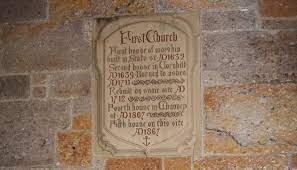 First Church
First house of worship
built in State St AD1632
Second house in Cornhill
AD1639 Burned to ashes
AD1711
Rebuilt on same site AD
1712
Fourth house in Chauncy
St AD1807
Fifth house on this site
AD1867